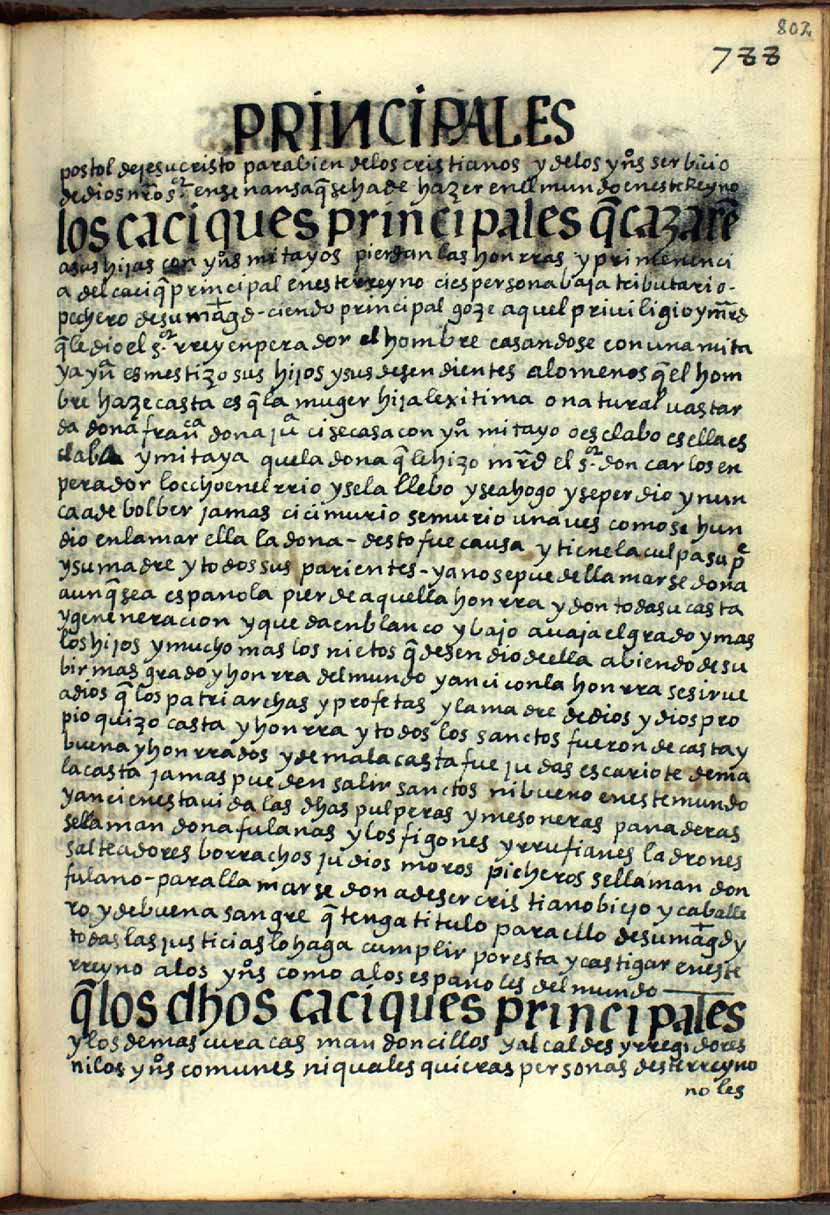 802
788
PRINCIPALES
postol de jesucristo para bien de los cristianos y de los yn̄s serbicio
de dios nr̄o sr. ensenansa q̄ se ha de hazer en el mundo en este Reyno
los caciques principales q̄ cazarē
a sus hijas con yn̄s mitayos pierdan las honrras y primenenci
a del caciq̄ principal en este rreyno cies persona baja tributario-
pechero de su maḡd-ciendo principal goze aquel priviligio y mr̄d
q̄ le dio el sr. rrey enperador el hombre casandose con una mita
ya yn̄a es mestizo sus hijos y sus desendientes a lo menos q̄ el hom
bre haze casta es q̄ la muger hija lexitima o natural vastar
da dona franca dona jua ci se casa con yn̄ mitayo o esclabo es ella es
claba y mitaya que la dona q̄ le hizo mr̄d el sr. don carlos en
perador lo echo en el rrio y se la llebo y se ahogo y se perdio y nun
ca a de bolber jamas ci ci murio se murio una ves como se hun
dio en la mar ella la dona- desto fue causa y tiene la culpa su pe
y su madre y todos sus parientes-ya no se puede llamarse dona
aunq̄ sea espanola pierde aquella honrra y don toda su casta
y generacion y queda en blanco y bajo avaja el grado y mas
los hijos y mucho mas los nietos q̄ desendio de ella abiendo de su
bir mas grado y honrra del mundo y anci con la honrra se sirue
a dios q̄ los patriarchas y profetas y la madre de dios y dios pro
pio quizo casta y honrra y todos los sanctos fueron de casta y
buena y honrrados y de mala casta fue judas escariote de ma
la casta jamas pueden salir sanctos ni bueno en este mundo
y anci en esta uida las dhas pulperas y mesoneras panaderas
se llaman dona fulanas y los figones y rrufianes ladrones
salteadores borrachos judios moros picheros se llaman don
fulano-para llamarse don a de ser cristiano biejo y caballe
ro y de buena sangre q̄ tenga titulo para ello de su maḡd y
todas las justicias lo haga cumplir por esta y castigar en este
rreyno a los yn̄s como a los espanoles del mundo
q̄ los dhos caciques principales
y los demas curacas mandoncillos y alcaldes y rregidores
ni los yn̄s comunes ni quales quieras personas deste rreyno
no les